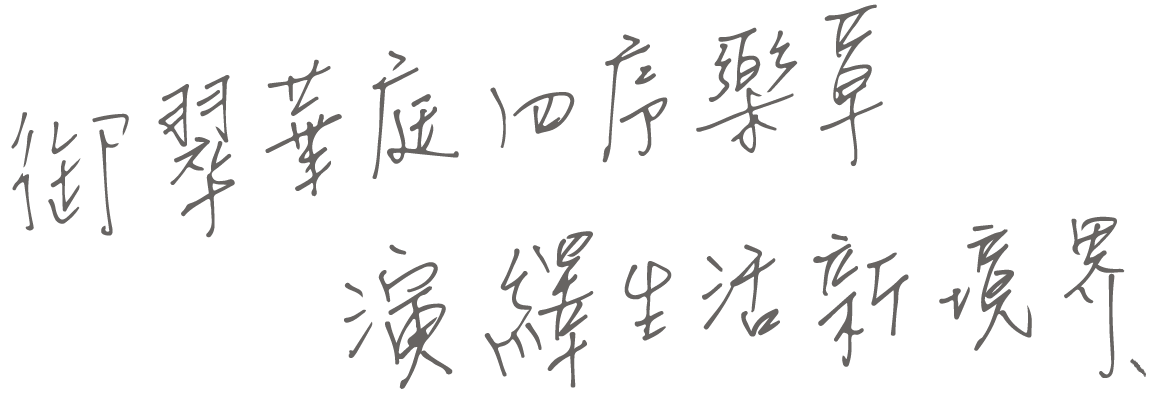 御翠華庭四序樂章
演繹生活新境界、